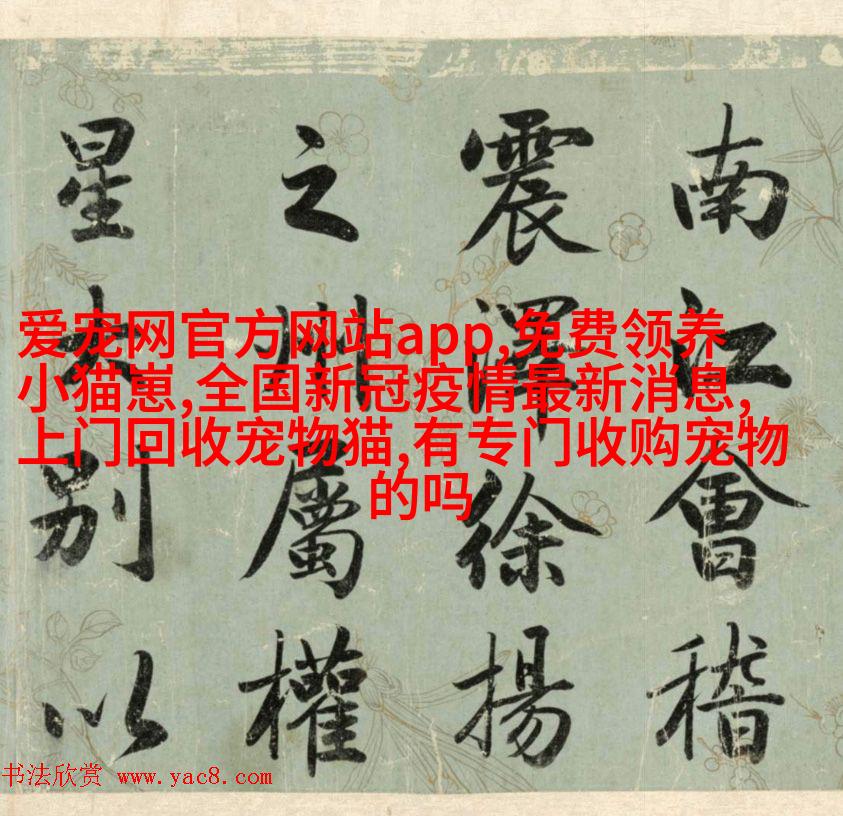 南江會稽
震澤徐揚
之州屬權
星大別以
爱宠网官方网站app,免费领养
小猫崽,全国新冠疫情最新消息,
上门回收宠物猫,有专门收购宠物
的吗
书法欣赏 www.yac8.com